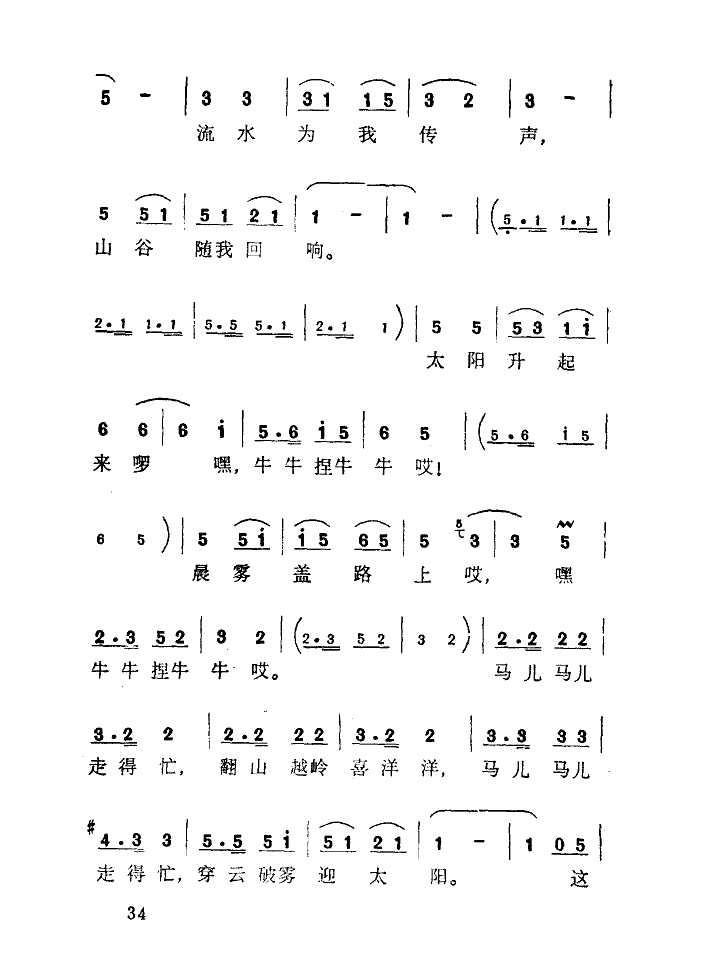 5 - | 3 3 | 3 1 1 5 | 3 2 | 3 - |
流 水 为 我 传 声，
5 5 1 | 5 1 2 1 | 1 - | 1 - | ( 5 . 1 1 . 1 |
山 谷 随我 回 响。
2 . 1 1 . 1 | 5 . 5 5 . 1 | 2 . 1 1 ) | 5 5 | 5 3 1 i |
太 阳 升 起
6 6 | 6 i | 5 . 6 i 5 | 6 5 | ( 5 . 6 i 5 |
来 啰 嘿，牛 牛 捏牛 牛 哎！
6 5 ) | 5 5 i | i 5 6 5 | 5 3 | 3 5 |
晨 雾 盖 路 上 哎， 嘿
2 . 3 5 2 | 3 2 | ( 2 . 3 5 2 | 3 2 ) | 2 . 2 2 2 |
牛 牛 捏牛 牛 哎。 马 儿 马儿
3 . 2 2 | 2 . 2 2 2 | 3 . 2 2 | 3 . 3 3 3 |
走 得 忙， 翻 山 越岭 喜 洋 洋， 马 儿 马儿
#4 . 3 3 | 5 . 5 5 i | 5 1 2 1 | 1 - | 1 0 5 |
走 得 忙，穿 云 破雾 迎 太 阳。 这
34